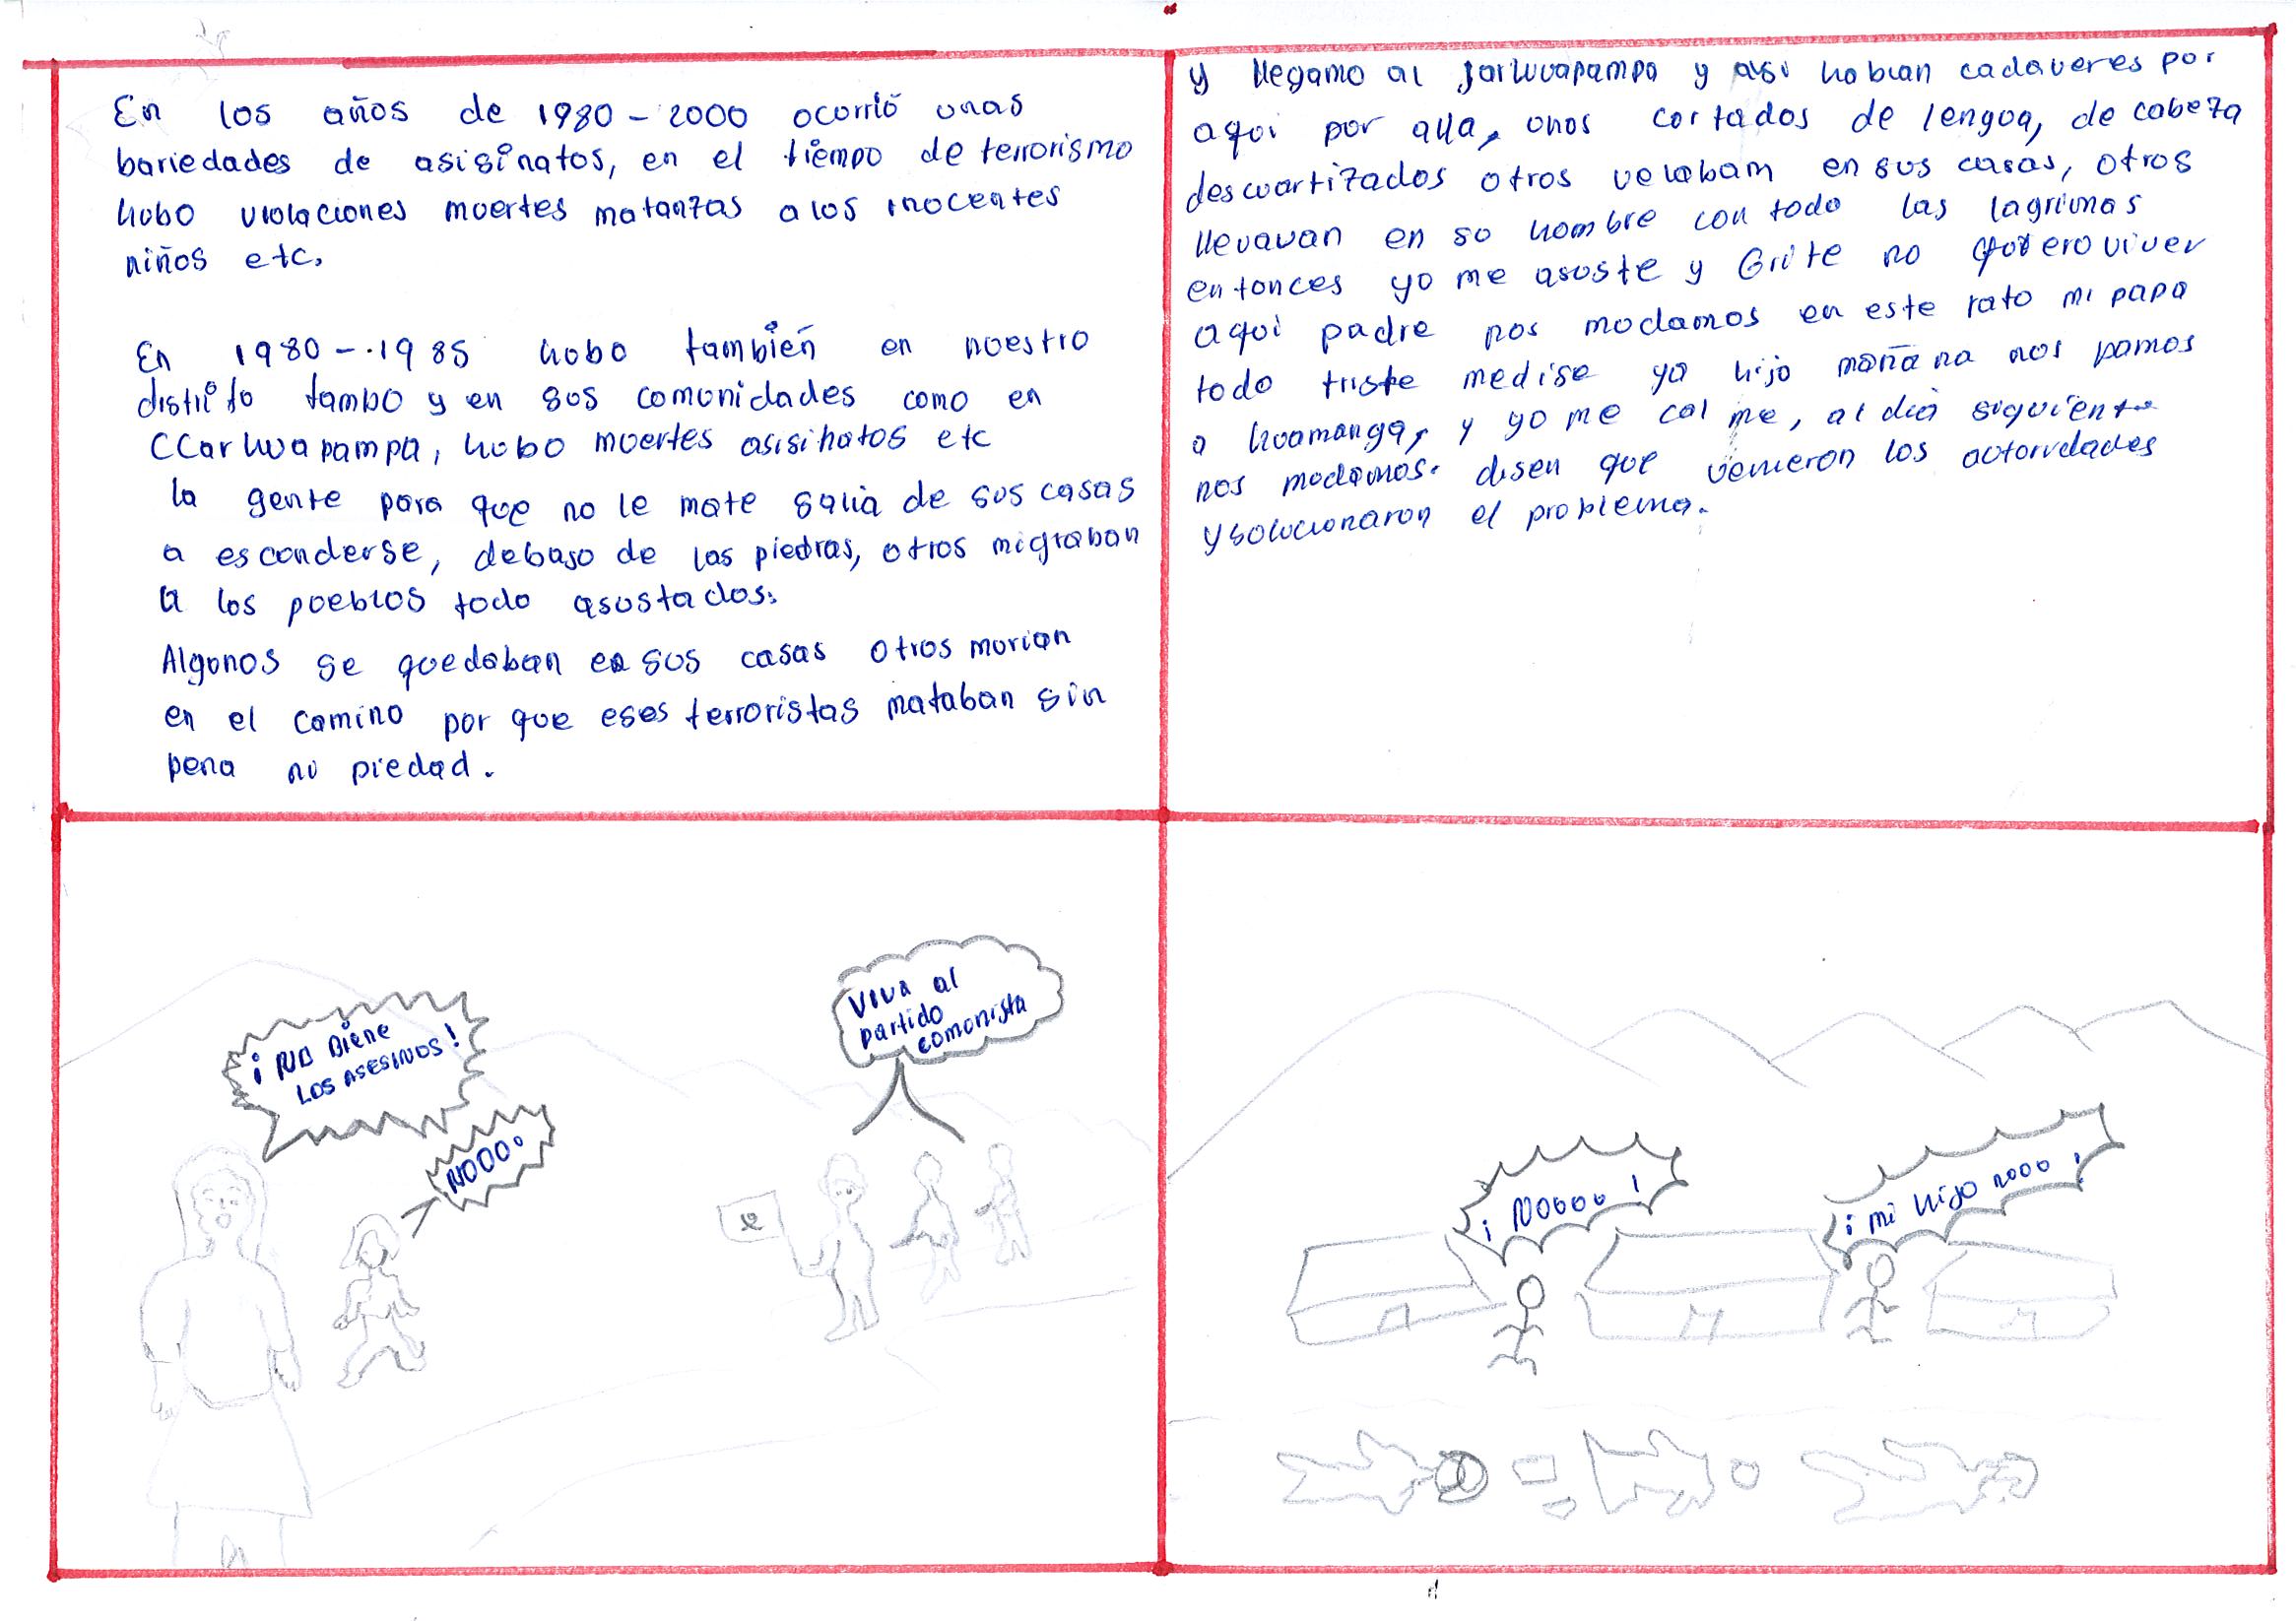 En los años de 1980 - 2000 ocorrió unas
bariedades de asisinatos, en el tiempo de terrorismo
hubo violaciones muertes matanzas a los inocentes
niños etc.
En 1980 - 1985 hobo también en nuestro
distrito tambo y en sus comunidades como en
CCarhuapampa, hubo muertes asisinatos etc
la gente para que no le mate salia de sus casas
a esconderse, debajo de las piedras, otros migraban
a los pueblos todo asustados.
Algonos se quedaban en sus casas otros morian
en el camino por que eses terroristas mataban sin
pena ni piedad.
y llegamo al jarhuapampa y asi habian cadaveres por
aqui por alla, unos cortados de lengua, de cabeza
descuartizados otros velabam en sus casas, otros
llevavan en so hombre con todo las lagrimas
entonces yo me asuste y Grite no quiero viver
aqui padre nos modamos en este rato mi papa
todo triste medise ya hijo mañana nos pamos
a huamanga, y yo me calme, al dia siguiente
nos modamos. disen que venieron los autoridades
y solucionaron el problema.
¡NO Biene
LOS ASESINOS!
NOOO
Viva al
partido
comonista
¡Noooo!
¡mi hijo nooo!